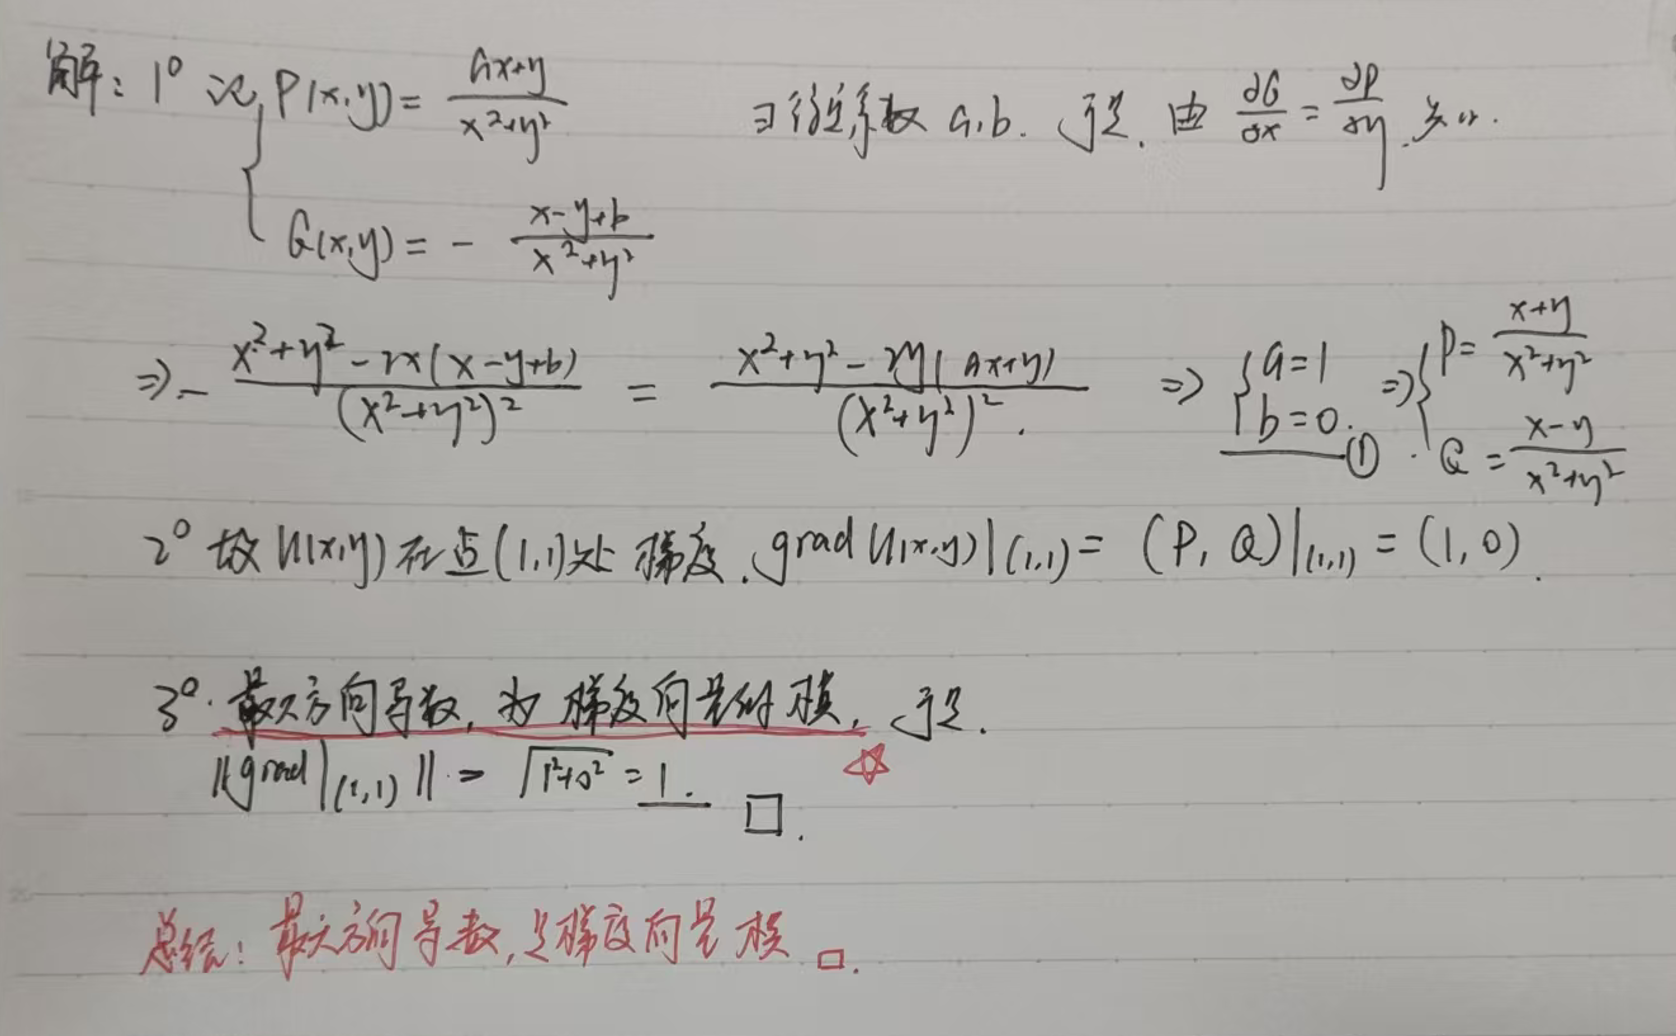 解: 1° 记 { P(x,y) = (ax+y)/(x²+y²) 待定系数 a,b. 于是. 由 ∂Q/∂x = ∂P/∂y, 知
Q(x,y) = - (x-y+b)/(x²+y²)
⇒ - (x²+y²-2x(x-y+b))/(x²+y²)² = (x²+y²-2y(ax+y))/(x²+y²)². ⇒ { a=1 b=0. ① ⇒ { P = (x+y)/(x²+y²) Q = (x-y)/(x²+y²)
2° 故 u(x,y) 在点(1,1)处 梯度. grad u(x,y)|(1,1) = (P, Q)|(1,1) = (1,0).
3°. 最大方向导数, 为 梯度向量的模, 于是.
||grad|(1,1)|| = √(1²+0²) = 1. □.
总结: 最大方向导数, 是梯度向量模 □.